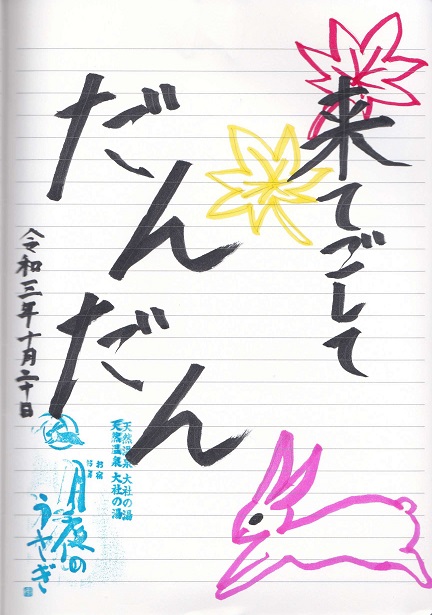 来てごして
だんだん
だんだん
令和三年十月二十日
天然温泉 大社の湯
天然温泉 大社の湯
お宿
月夜の
うさぎ